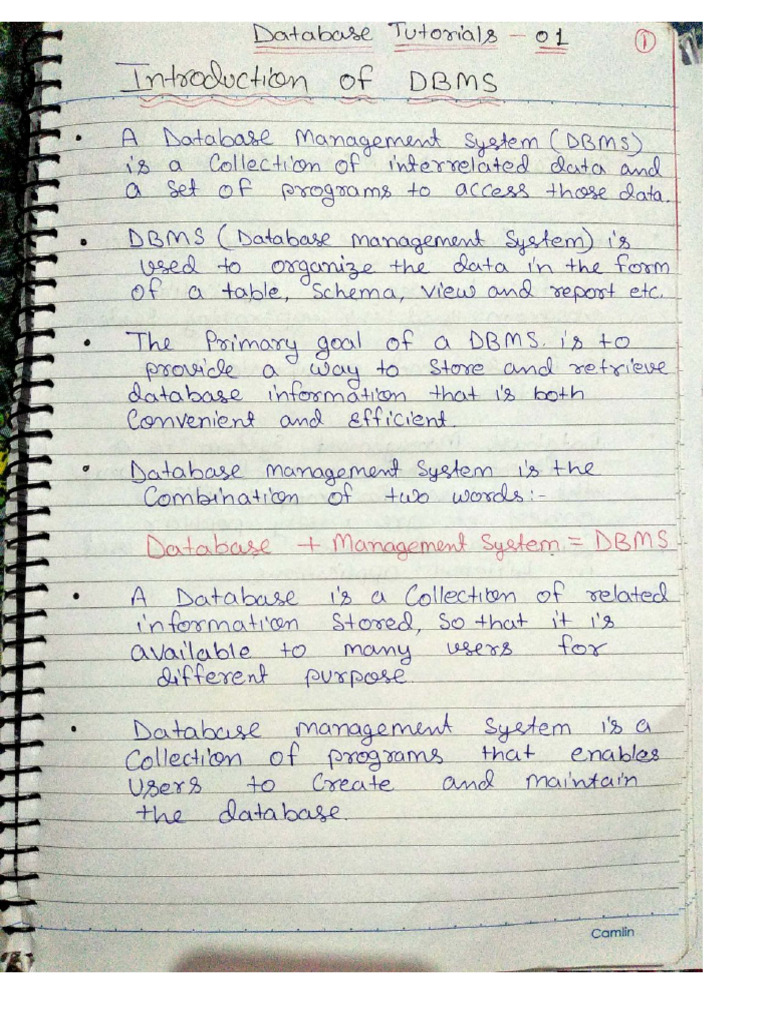 Database Tutorials - 01
1
Introduction of DBMS
• A Database Management System (DBMS)
is a Collection of interrelated data and
a set of programs to access those data.
• DBMS (Database management System) is
used to organize the data in the form
of a table, Schema, view and report etc.
• The Primary goal of a DBMS. is to
provide a way to store and retrieve
database information that is both
Convenient and Efficient.
• Database management System is the
Combination of two words:-
Database + Management System = DBMS
• A Database is a Collection of related
information Stored, So that it is
available to many users for
different purpose.
• Database management System is a
Collection of programs that enables
Users to Create and maintain
the database.
Camlin